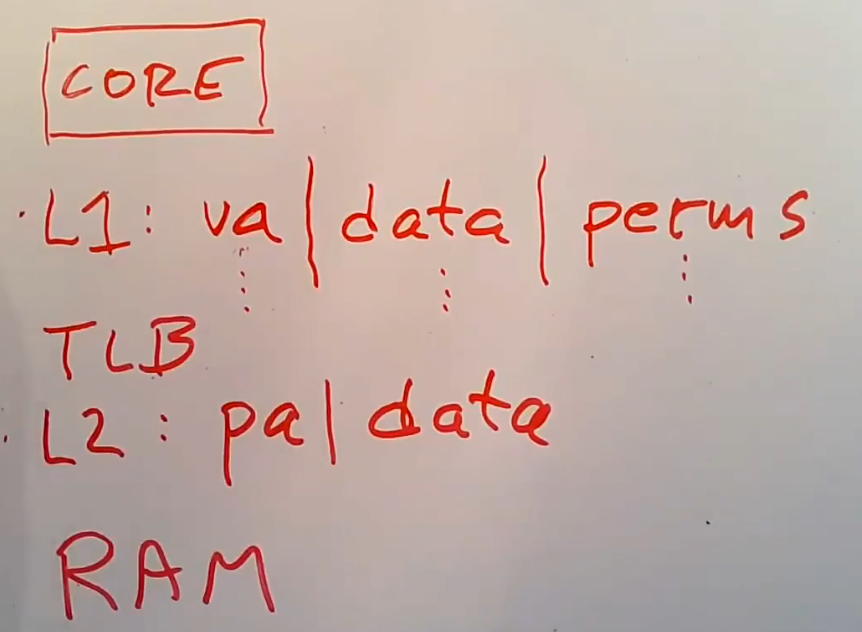 CORE
L1: va | data | perms
TLB
L2: pa | data
RAM